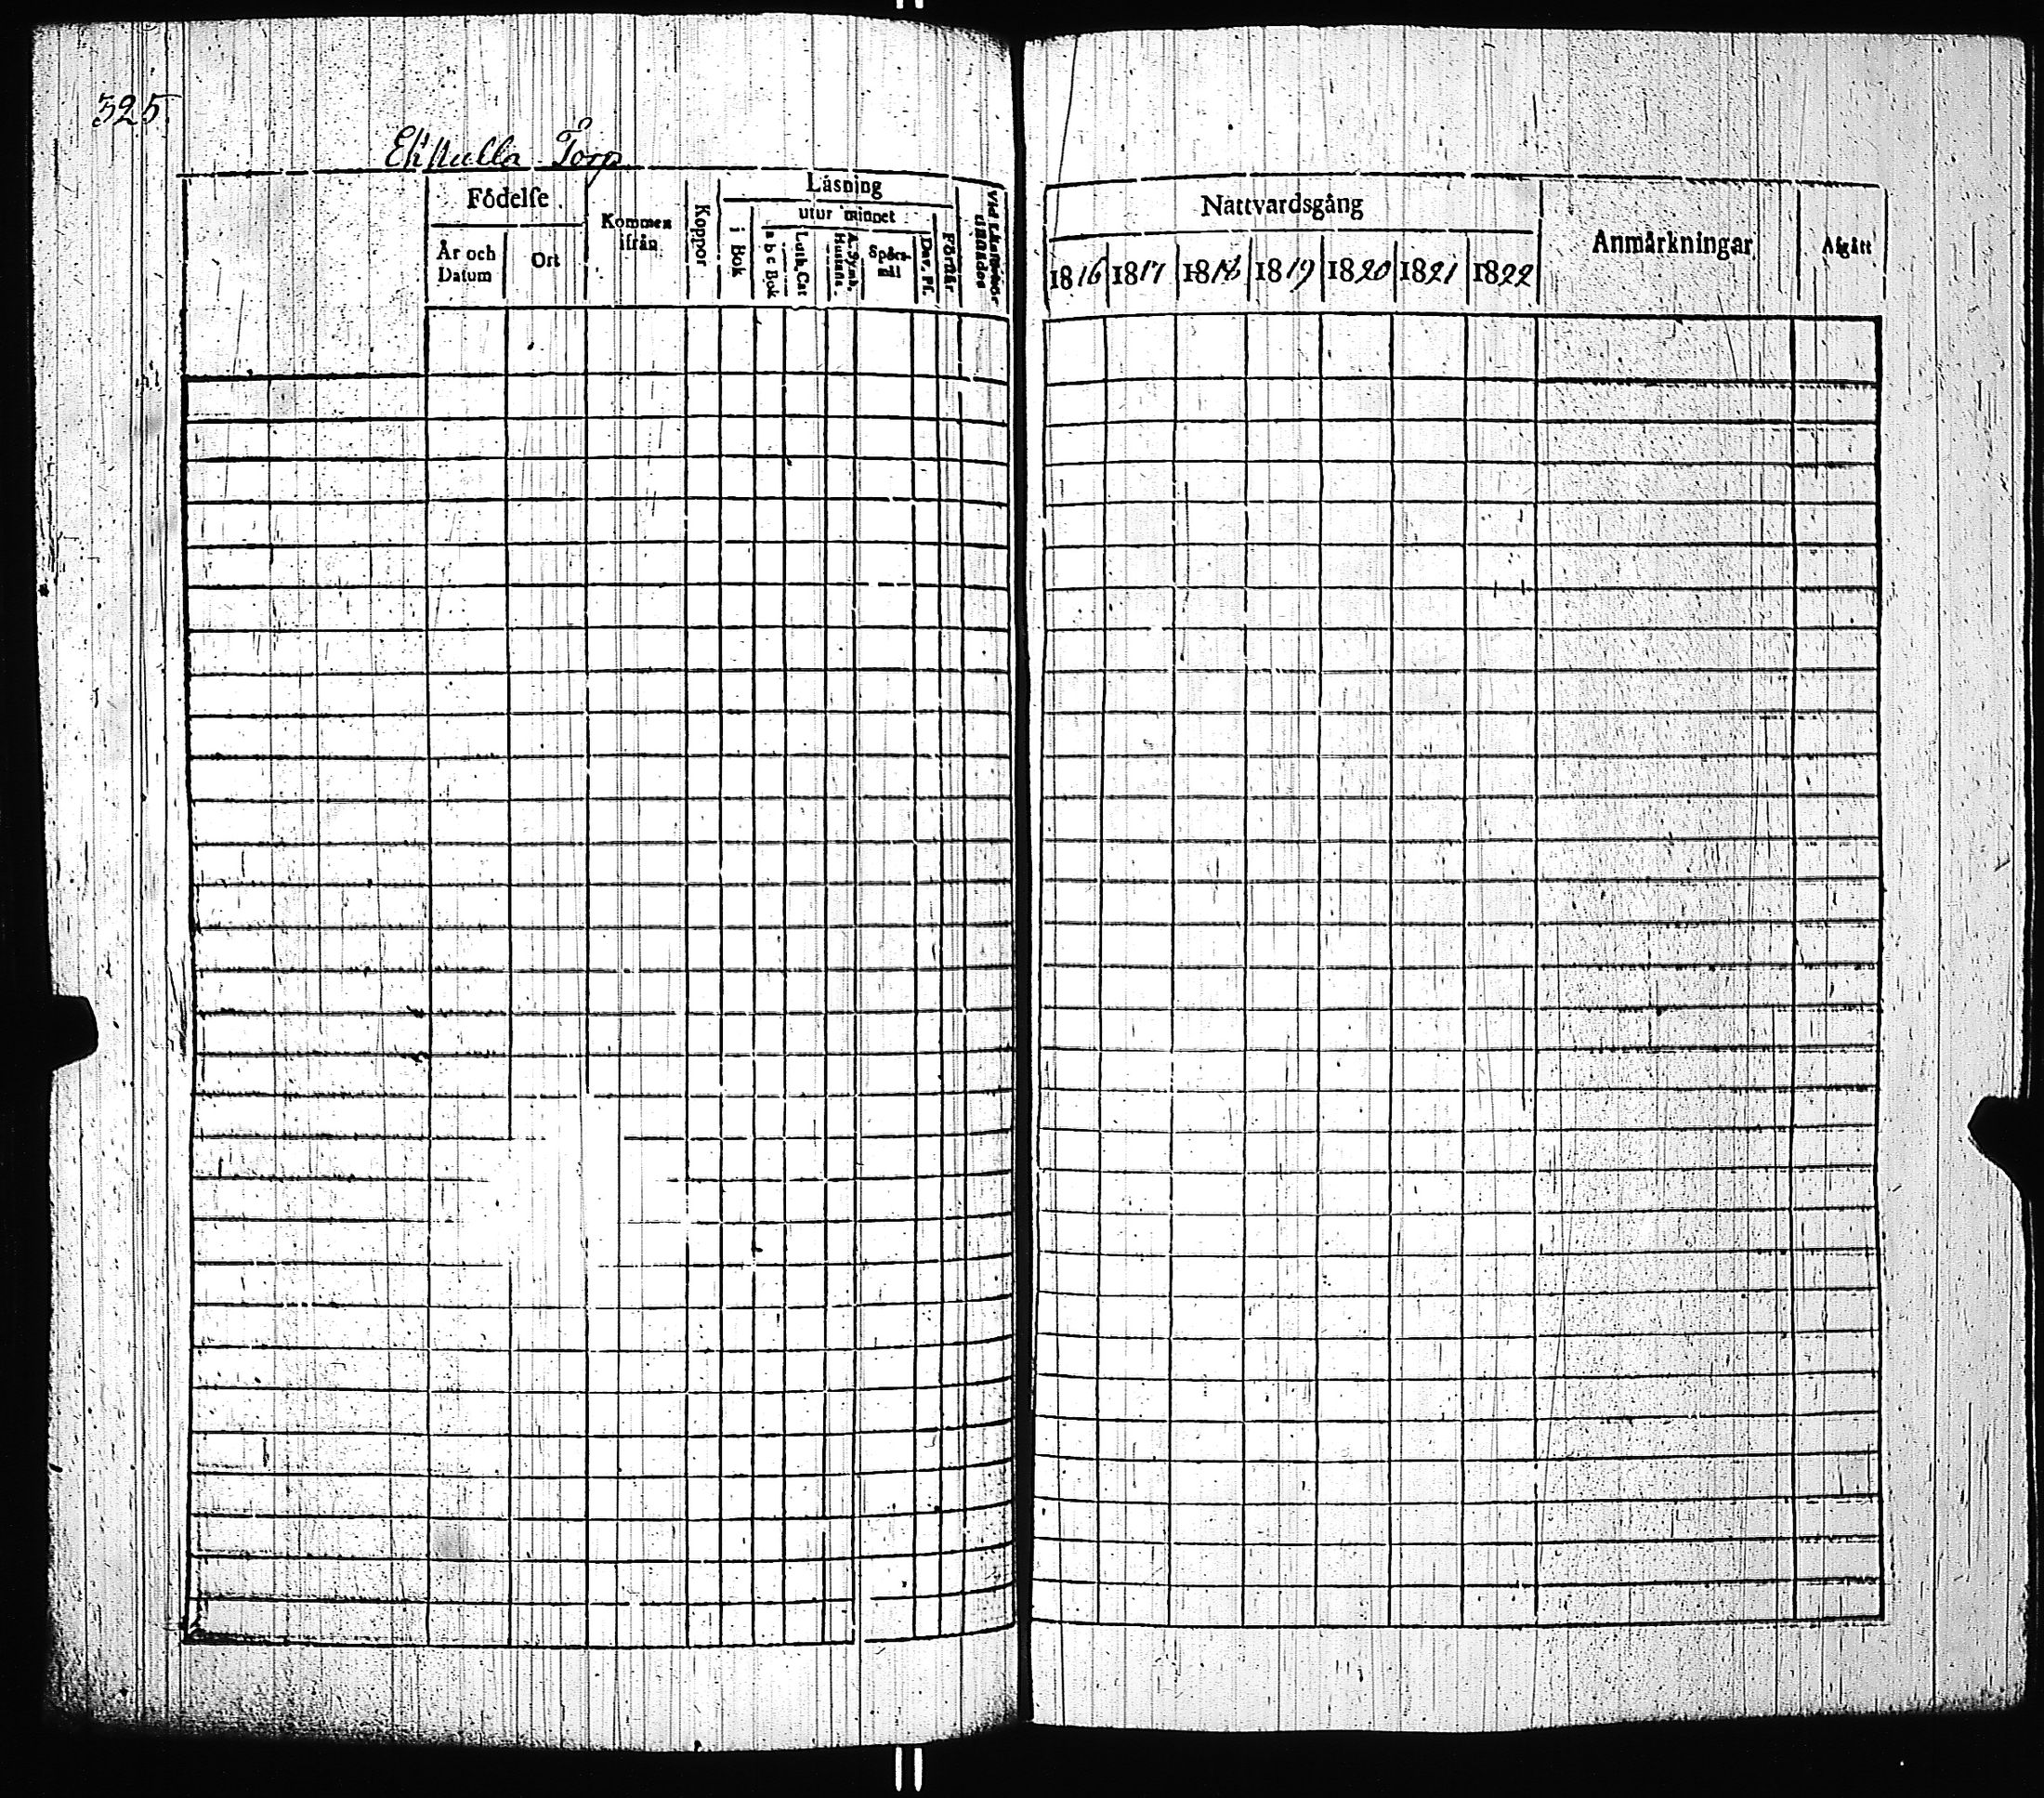 325
Ekkulla Torp
Födelse
Läsning
Kommen ifrån
Koppor
utur minnet
År och Datum
Ort
i Bok
a b c Bok
Luth. Cat
A. Symb. Hustafla.
Spörsmål
Dav. Ps.
Förstår
Nattvardsgång
Anmärkningar
Afgått
1816 1817 1818 1819 1820 1821 1822